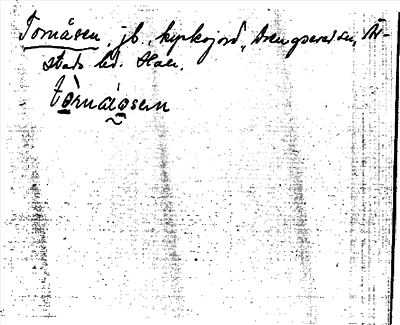 Tornåsen, jb., kyrkojord, Drengsered sn, År-
stads hd. Hall.
tò̱rnáo̰sɛn